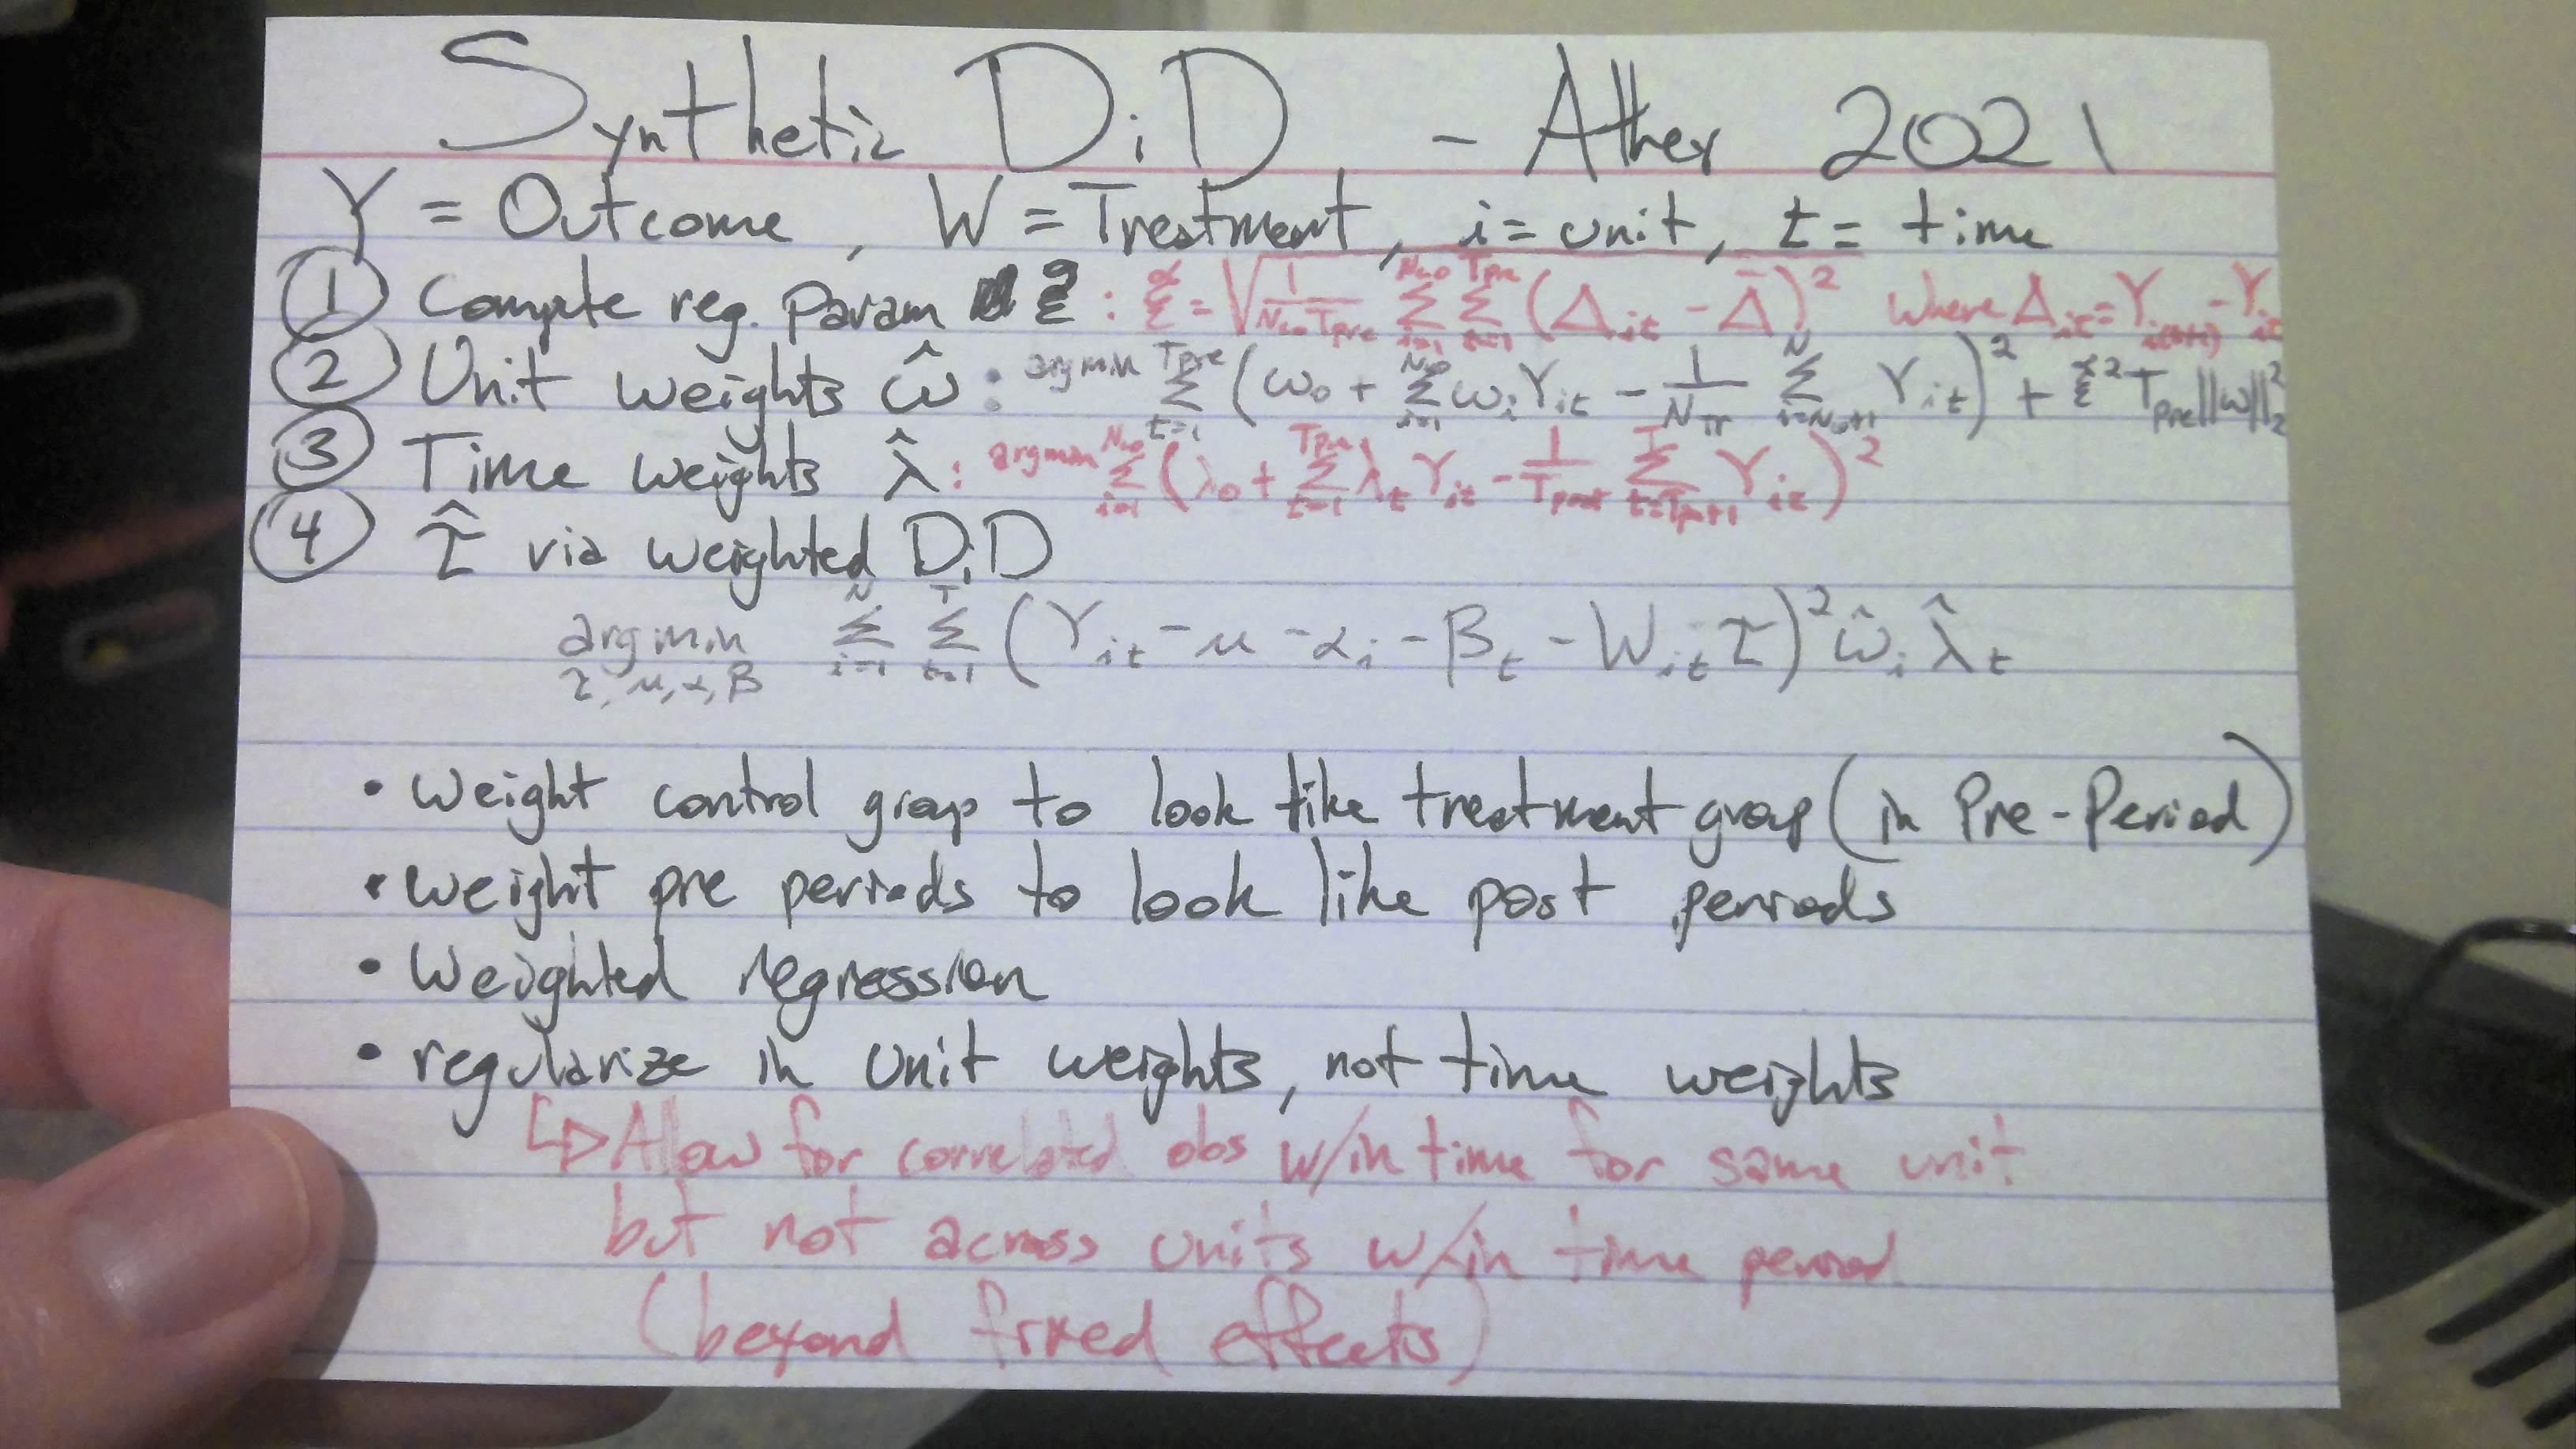 Synthetic DiD - Athey 2021
Y = Outcome, W = Treatment, i = unit, t = time
① Compute reg. Param ξ : ξ = √(1/(N_co T_pre) Σ_{i=1}^{N_co} Σ_{t=1}^{T_pre} (Δ_it - Δ̄)² where Δ_it = Y_i(t+1) - Y_it
② Unit weights ω̂ : argmin Σ_{t=1}^{T_pre} (ω_0 + Σ_{i=1}^{N_co} ω_i Y_it - 1/N_Tr Σ_{i=N_co+1}^{N} Y_it)² + ξ² T_pre ||ω||_2^2
③ Time weights λ̂ : argmin Σ_{i=1}^{N_co} (λ_0 + Σ_{t=1}^{T_pre} λ_t Y_it - 1/T_post Σ_{t=T_pre+1}^{T} Y_it)²
④ τ̂ via weighted DiD
argmin_{τ, μ, α, β} Σ_{i=1}^{N} Σ_{t=1}^{T} (Y_it - μ - α_i - β_t - W_it τ)² ω̂_i λ̂_t
• Weight control group to look like treatment group (in Pre-Period)
• Weight pre periods to look like post periods
• Weighted regression
• regularize in unit weights, not time weights
↳ Allow for correlated obs w/in time for same unit
but not across units w/in time period
(beyond fixed effects)